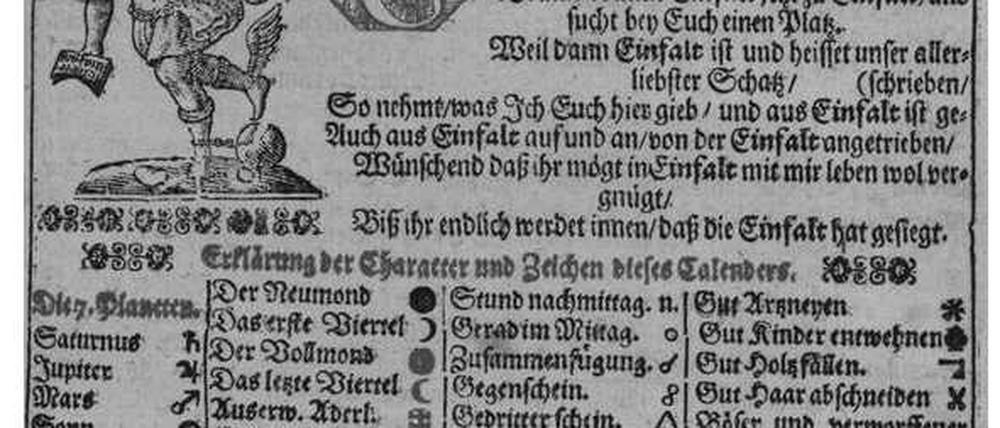 sucht bey Euch einen Platz.
Weil dann Einfalt ist und heisset unser aller-
liebster Schatz/ (schrieben/
So nehmt/was Ich Euch hier gieb/ und aus Einfalt ist ge-
Auch aus Einfalt auf und an/von der Einfalt angetrieben/
Wünschend daß ihr mögt in Einfalt mit mir leben wol ver-
gnügt/
Biß ihr endlich werdet innen/daß die Einfalt hat gesiegt.
Erklärung der Character und Zeichen dieses Calenders.
Die 7. Planeten.
Saturnus ♄
Jupiter ♃
Mars ♂
Sonn
Der Neumond ●
Das erste Viertel ☽
Der Vollmond ●
Das letzte Viertel ☾
Auserw. Aderl.
Stund nachmittag. n.
Gerad im Mittag. o
Zusammenfügung. ☌
Gegenschein. ☍
Gedritterschein. △
Gut Artzneyen
Gut Kinder entwehnen
Gut Holtz fällen.
Gut Haar abschneiden
Böser und verworffener